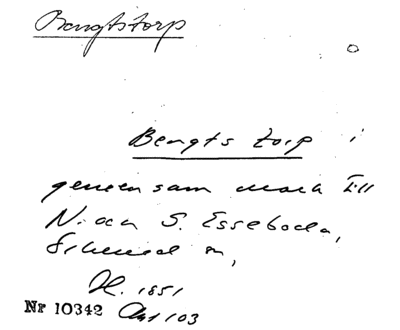 Bengtstorp
Bengts torp i
gemensam mark till
N. och S. Esseboda,
H. 1851
Nr 10342 Akt 103